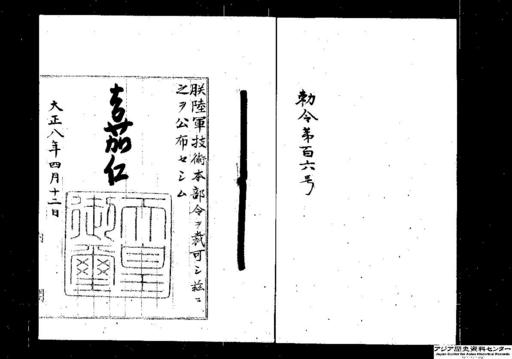 勅令第百六号
朕陸軍技術本部令ヲ裁可シ茲ニ
之ヲ公布セシム
嘉仁
天皇
御璽
大正八年四月十二日
内閣
アジア歴史資料センター
Japan Center for Asian Historical Records